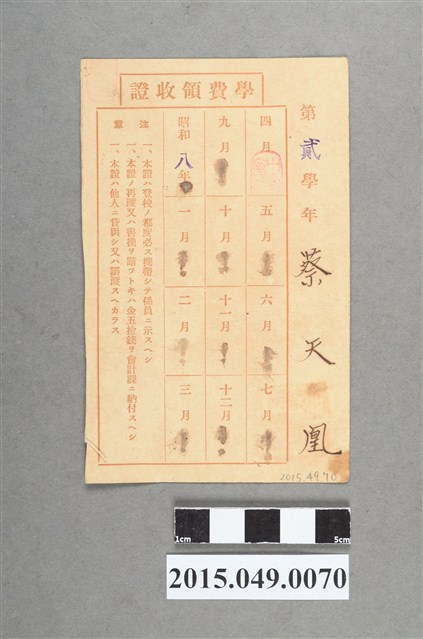 學費領收證
第貳學年 蔡天凰
四月 五月 六月 七月
九月 十月 十一月 十二月
昭和八年 一月 二月 三月
注意
一、本證ハ登校ノ都度必ス携帶シテ係員ニ示スヘシ
一、本證ノ再渡又ハ書換ヲ請フトキハ金五拾錢ヲ會計課ニ納付スヘシ
一、本證ハ他人ニ貸與シ又ハ讓渡スヘカラス
2015.49.70
1cm 5cm
2015.049.0070